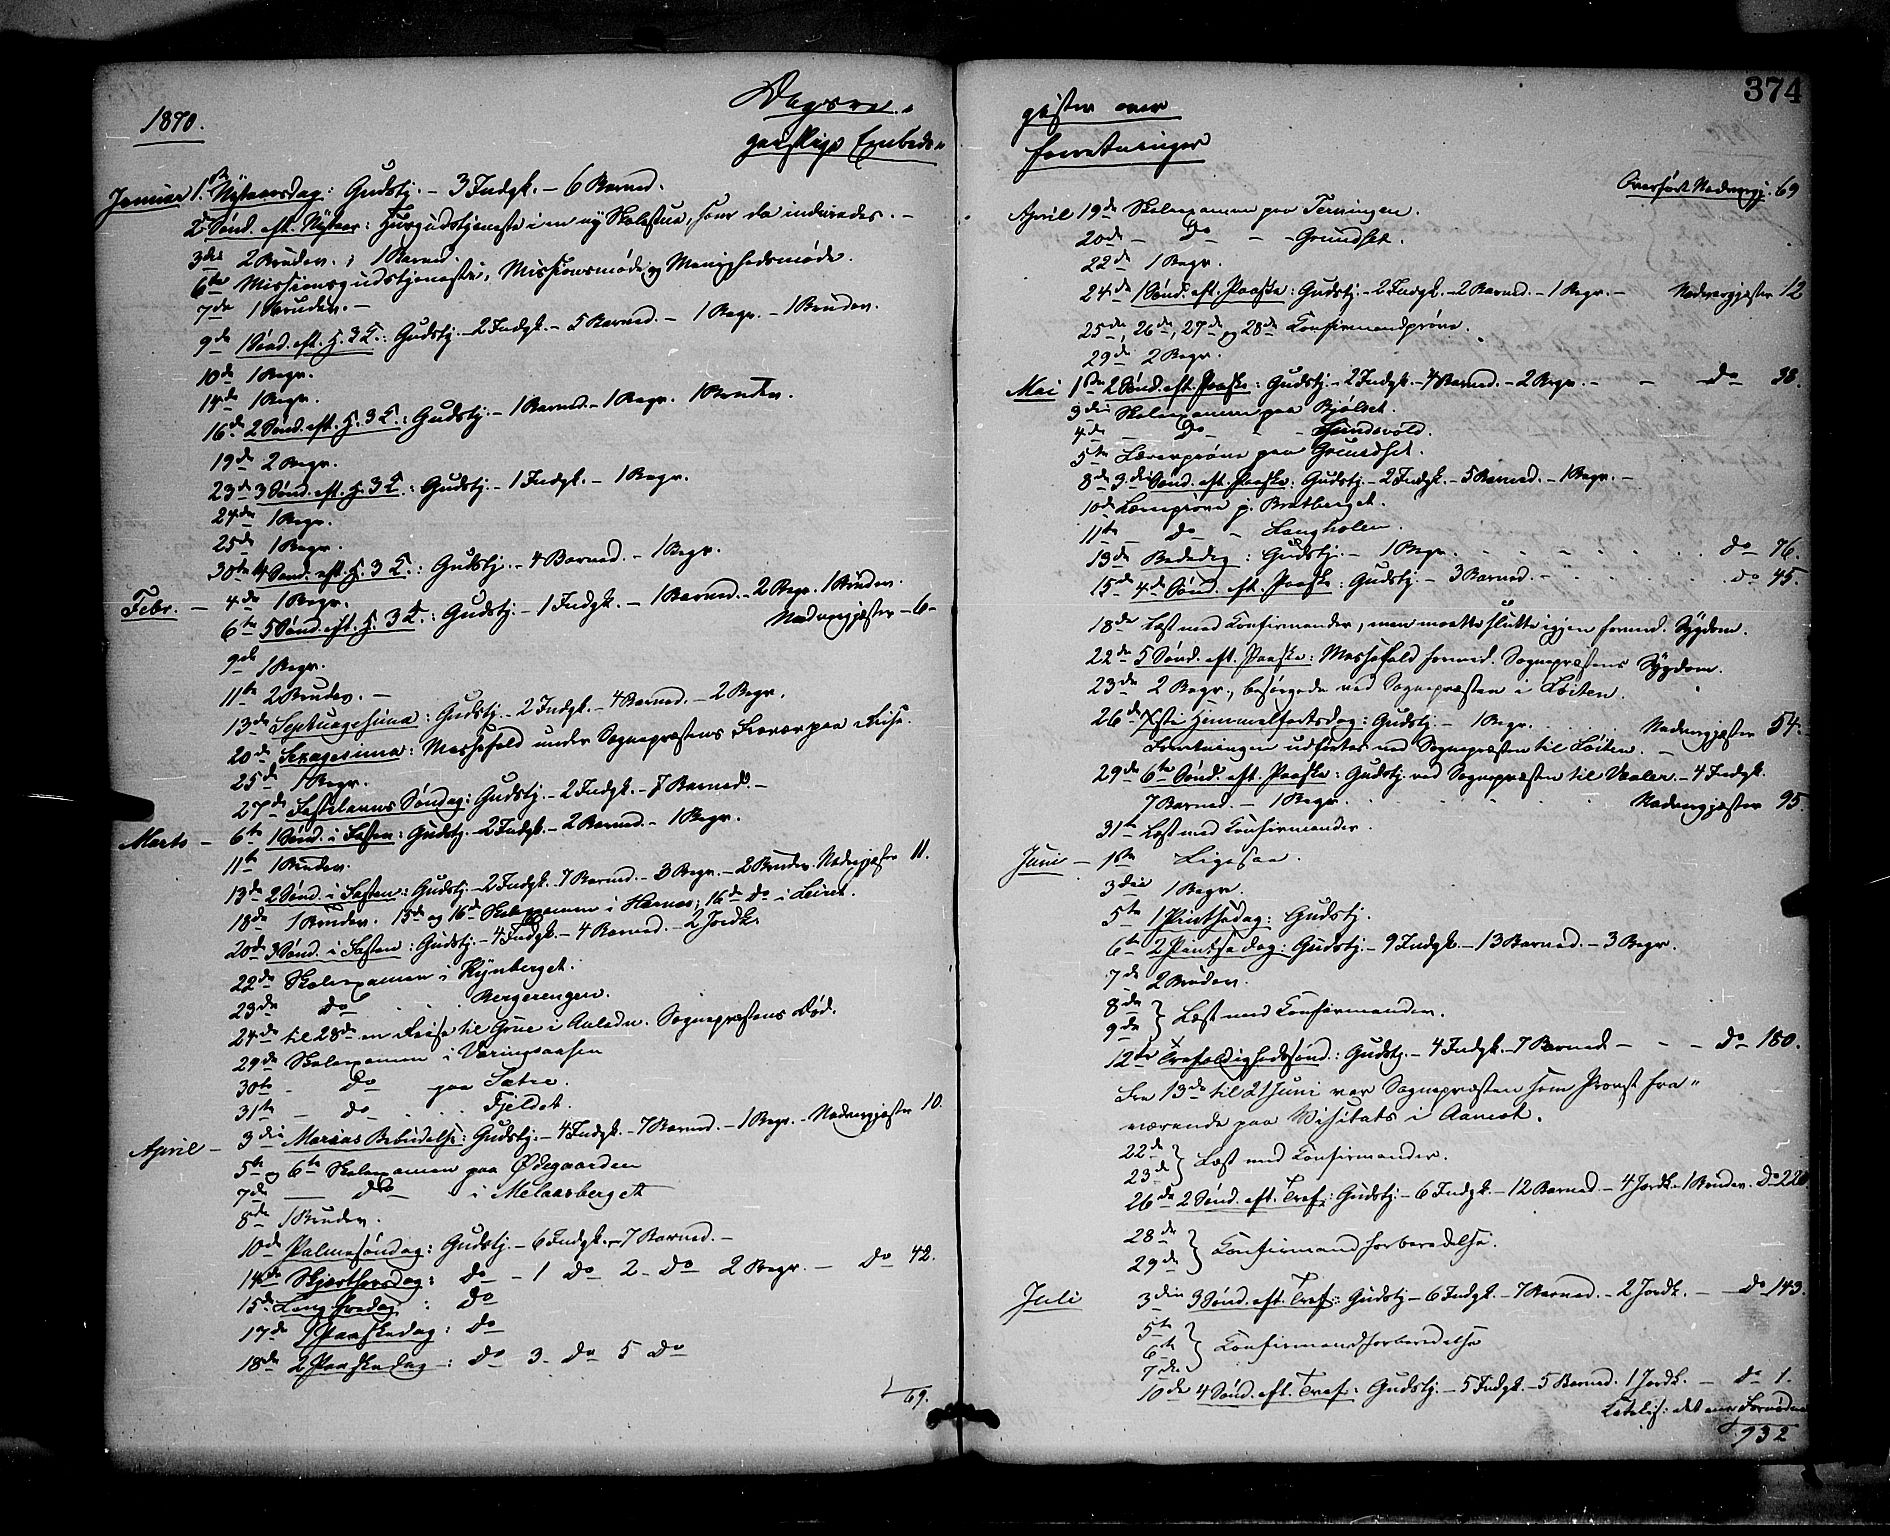 1870.
Dagsre-
geistlige Embeds-
Januar 1ste Nytaarsdag: Gudstj. - 3 Indgk. - 6 Barned.
2d Sønd. eft. Nytaar: Husgudstjeneste i en ny Skolestue, som da indviedes. -
3die 2 Bruden. ; 1 Barned.
6te Missionsgudstjeneste, Missionsmøde og Menighedsmøde.
7de 1 Bruden. -
9de 1 Sønd. eft. H. 3 K.: Gudstj. - 2 Indgk. - 5 Barned. - 1 Begr. - 1 Bruden.
10de 1 Begr.
14de 1 Begr.
16de 2 Sønd. eft. H. 3 K.: Gudstj. - 1 Barned. - 1 Begr. 1 Bruden.
19de 2 Begr.
23de 3 Sønd. eft. H. 3 K.: Gudstj. - 1 Indgk. - 1 Begr.
24de 1 Begr.
25de 1 Begr.
30te 4 Sønd. eft. H. 3 K.: Gudstj. - 4 Barned. - 1 Begr.
Febr. - 4de 1 Begr.
6te 5 Sønd. eft. H. 3 K.: Gudstj. - 1 Indgk. - 1 Barned. - 2 Begr. 1 Bruden.
Nadvergjæster - 6 -
9de 1 Begr.
11te 2 Bruden. -
13de Septuagesima: Gudstj. - 2 Indgk. - 4 Barned. - 2 Begr.
20de Sexagesima: Messefald under Sognepræstens Fravær paa Reise.
25de 1 Begr.
27de Fastelavns Søndag: Gudstj. - 2 Indgk. - 7 Barned. -
Marts - 6te 1 Sønd. i Fasten: Gudstj. - 2 Indgk. - 2 Barned. - 1 Begr.
11te 1 Bruden.
13de 2 Sønd. i Fasten: Gudstj. - 2 Indgk. 7 Barned. - 3 Begr. - 2 Bruden. Nadvergjæster 11.
18de 1 Bruden. 15de og 16de Skolexamen i Hernæs; 16de Do i Leiret.
20de 3 Sønd. i Fasten: Gudstj. - 4 Indgk. - 4 Barned. - 2 Jordk.
22de Skolexamen i Kynberget.
23de Do . . Bergerengen.
24de til 28de en Reise til Grue i Anledn. Sognepræstens Død.
29de Skolexamen i Væringsaasen
30te - Do paa Sætre.
31te - Do . . Fjeldet.
April - 3die Mariæ Bebudelse: Gudstj. - 4 Indgk. - 7 Barned. - 1 Begr. - Nadvergjæster 10.
5te og 6te Skolexamen paa Ødegaarden
7de - Do i Melaasberget
8de 1 Bruden.
10de Palmesøndag: Gudstj. - 6 Indgk. - 7 Barned. -
14de Skjærthorsdag: Do - 1 Do 2 - Do 2 Begr. - Do 42.
15de Langfredag: Do
17de 1 Paaskedag: Do
18de 2 Paaskedag -: Do 3 - Do 5 Do
69.
374
gister over
forretninger
Overført Nadvergj. 69
April 19de Skolexamen paa Terningen.
20de - Do - - Grundset.
22de 1 Begr.
24de 1 Sønd. eft. Paaske: Gudstj. - 2 Indgk. - 2 Barned. - 1 Begr. - Nadvergjæster 12
25de, 26de, 27de og 28de Konfirmandprøve.
29de 2 Begr.
Mai 1ste 2 Sønd. eft. Paaske: Gudstj. - 2 Indgk. - 4 Barned. - 2 Begr. - - Do 38.
3die Skolexamen paa Bjølset.
4de - Do - - Gundsvold.
5te Lærerprøve paa Grundset.
8de 3die Sønd. eft. Paaske: Gudstj. - 2 Indgk. - 5 Barned. - 1 Begr. -
10de Læreprøve p. Bratberget.
11te - Do - Langholen.
13de Bededag: Gudstj. - 1 Begr. Do 76.
15de 4de Sønd. eft. Paaske: Gudstj. - 3 Barned. - Do 45.
18de Læst med Konfirmander, men maatte slutte igjen formed. Sygdom.
22de 5 Sønd. eft. Paaske: Messefald formed. Sognepræstens Sygdom.
23de 2 Begr., besørgede ved Sognepræsten i Løiten.
26de Xsti Himmelfartsdag: Gudstj. - 1 Begr. Nadvergjæster 54.
Forretningen udførtes ved Sognepræsten til Løiten. -
29de 6te Sønd. eft. Paaske: Gudstj. ved Sognepræsten til Vaaler. - 4 Indgk.
7 Barned. - 1 Begr. Nadvergjæster 95.
31te Læst med Konfirmander.
Juni - 1ste Ligesaa.
3die 1 Begr.
5te 1 Pintsedag: Gudstj.
6te 2 Pintsedag: Gudstj. - 9 Indgk. - 13 Barned. - 3 Begr.
7de 2 Bruden.
8de
9de } Læst med Konfirmander.
12te Trefoldighedssønd.: Gudstj. - 4 Indgk. - 7 Barned. - - - Do 180.
Fra 13de til 21 Juni var Sognepræsten som Provst fra-
værende paa Visitats i Aamot.
22de
23de } Læst med Konfirmander.
26de 2 Sønd. eft. Tref.: Gudstj. - 6 Indgk. - 12 Barned. - 4 Jordk. - 1 Bruden. Do 220
28de
29de } Konfirmandforberedelse.
Juli 3die 3 Sønd. eft. Tref.: Gudstj. - 6 Indgk. - 7 Barned. - 2 Jordk. - - Do 143.
5te
6te } Konfirmandforberedelse
7de
10de 4 Sønd. eft. Tref.: Gudstj. - 5 Indgk. - 5 Barned. 1 Jordk. - Do 1.
932